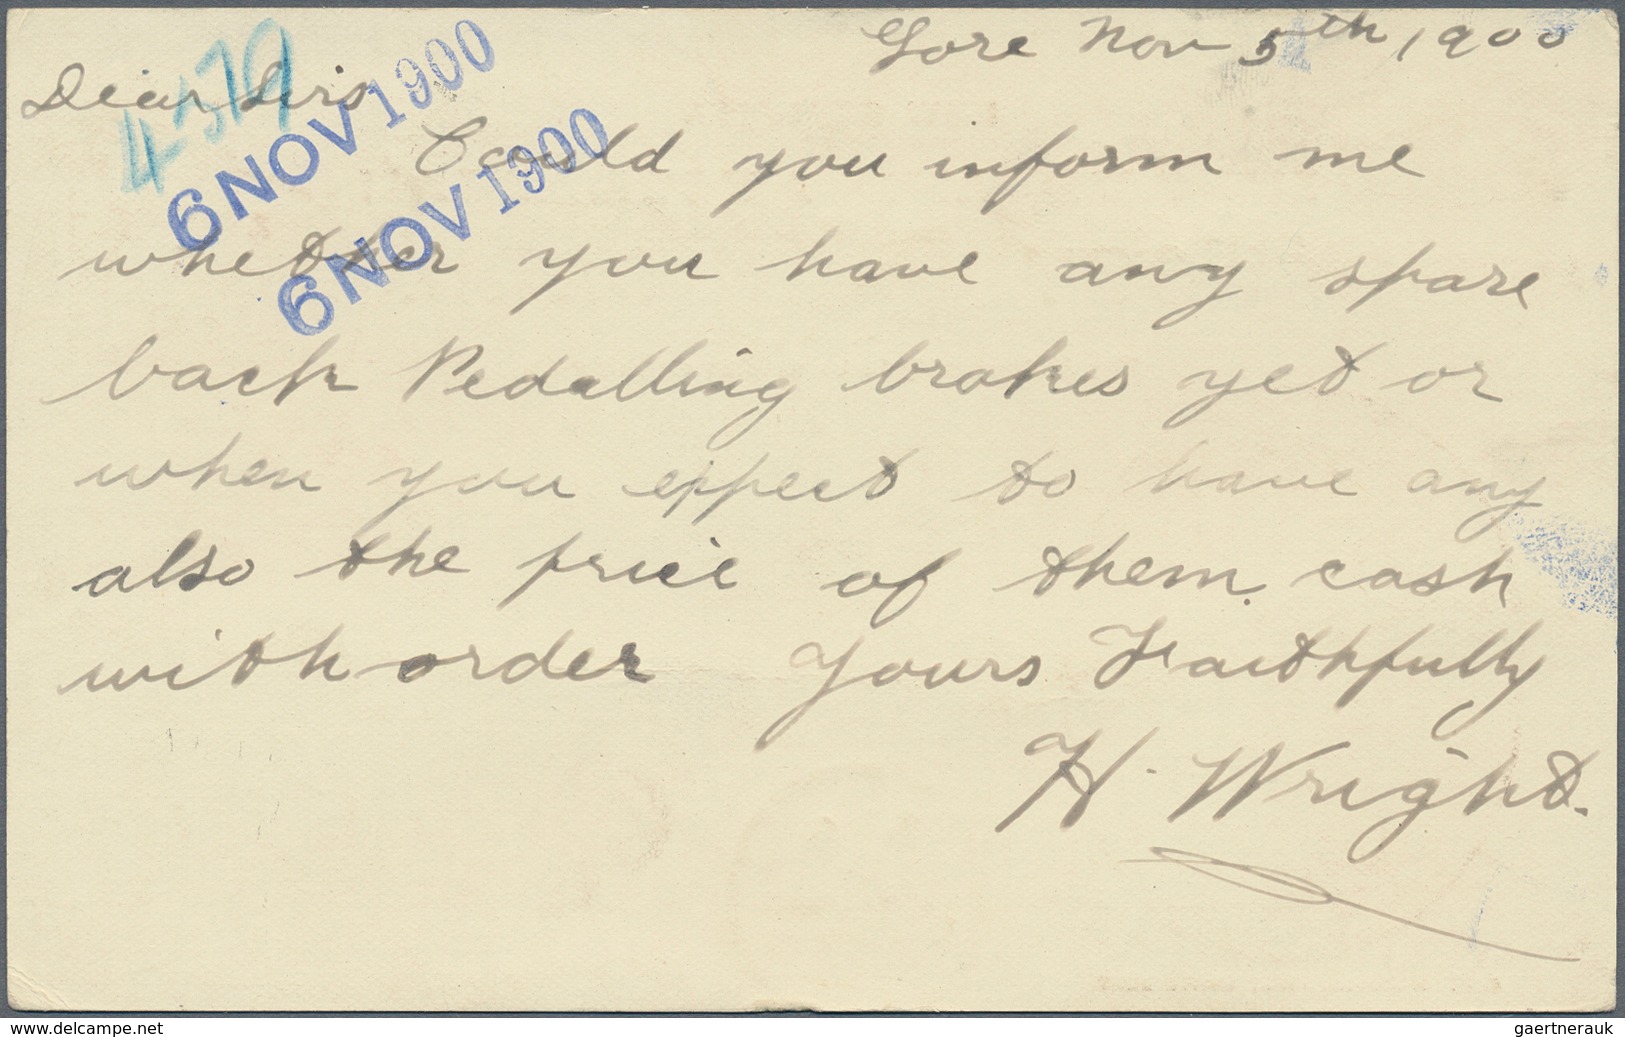 Gore Nov 5th 1900
Dear Sirs
4579
6 NOV 1900
6 NOV 1900
Could you inform me
whether you have any spare
back Pedalling brakes yet or
when you expect to have any
also the price of them. cash
with order Yours Faithfully
H. Wright.
www.delcampe.net
gaertnerauk